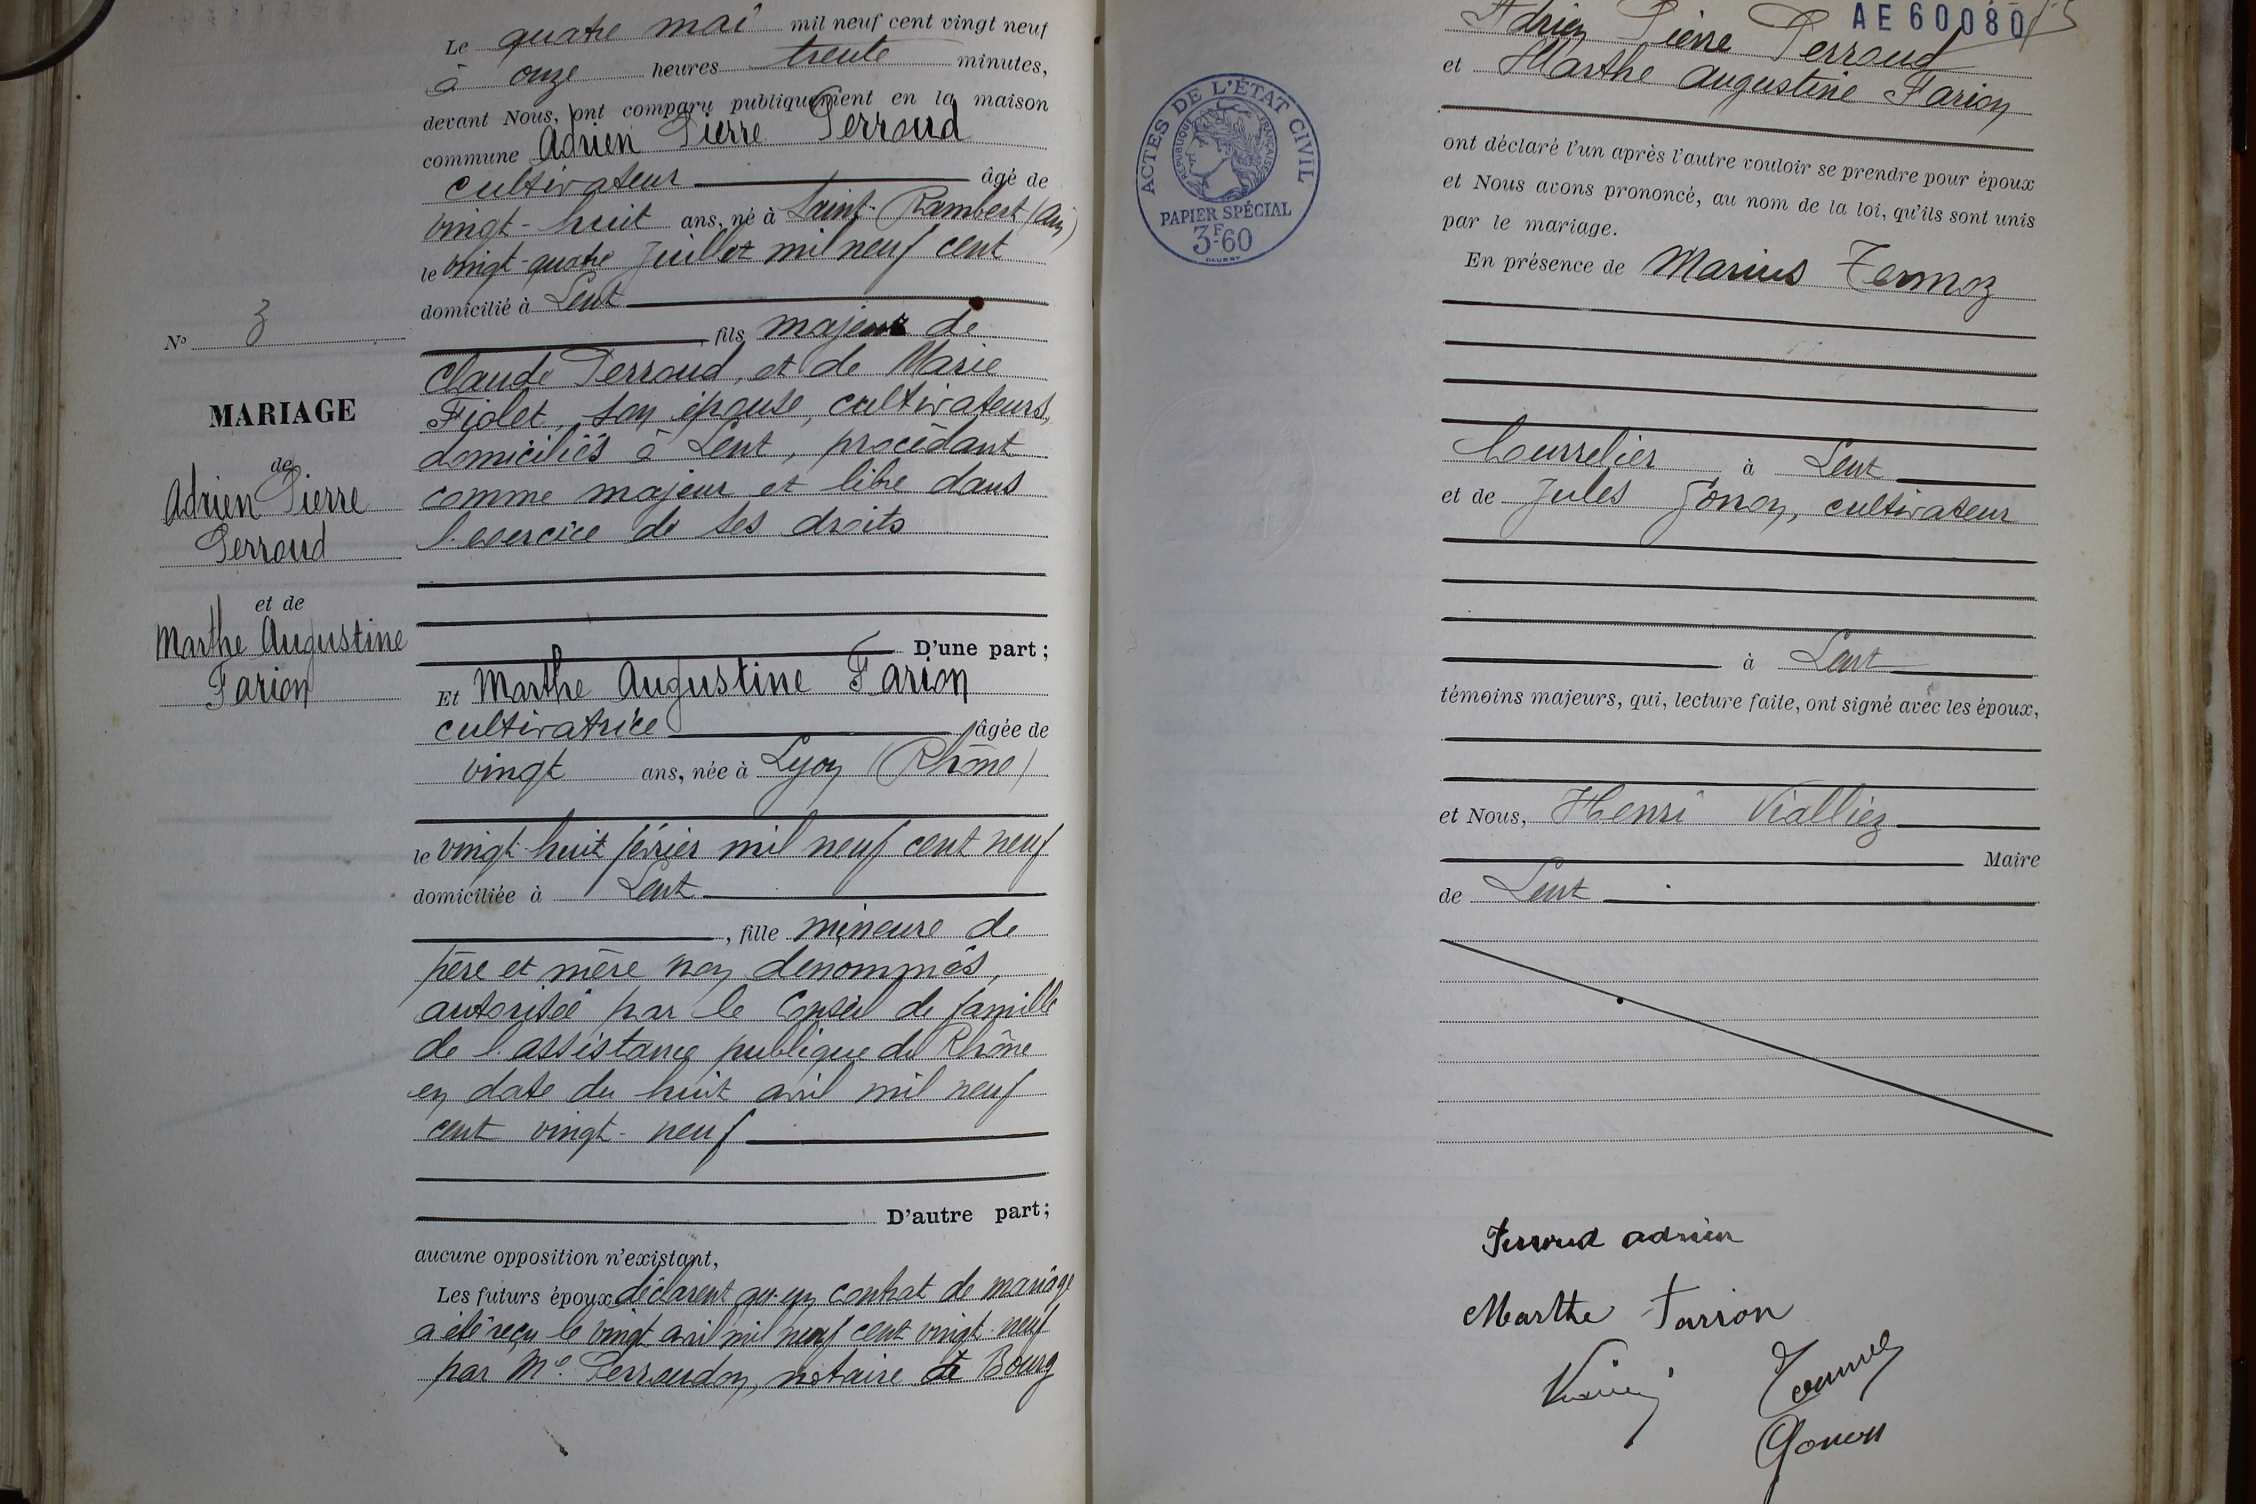 N° 3
MARIAGE
de
Adrien Pierre
Perroud
et de
Marthe Augustine
Farion
Le quatre mai mil neuf cent vingt neuf
à onze heures trente minutes,
devant Nous, ont comparu publiquement en la maison
commune Adrien Pierre Perroud
cultivateur âgé de
vingt-huit ans, né à Saint-Rambert (Ain)
le vingt-quatre Juillet mil neuf cent
domicilié à Lent
, fils majeur de
Claude Perroud, et de Marie
Fiolet, son épouse, cultivateurs,
domiciliés à Lent, procédant
comme majeur et libre dans
l'exercice de ses droits
D'une part;
Et Marthe Augustine Farion
cultivatrice âgée de
vingt ans, née à Lyon (Rhône)
le vingt-huit février mil neuf cent neuf
domiciliée à Lent
, fille mineure de
père et mère non dénommés,
autorisée par le Conseil de famille
de l'assistance publique du Rhône
en date du huit avril mil neuf
cent vingt-neuf
D'autre part;
aucune opposition n'existant,
Les futurs époux déclarent qu'un contrat de mariage
a été reçu le vingt avril mil neuf cent vingt-neuf
par Me Perroudon, notaire à Bourg
AE 60080
Adrien Pierre Perroud
et Marthe Augustine Farion
ont déclaré l'un après l'autre vouloir se prendre pour époux
et Nous avons prononcé, au nom de la loi, qu'ils sont unis
par le mariage.
En présence de Marius Termoz
bourrelier à Lent
et de Jules Gonon, cultivateur
à Lent
témoins majeurs, qui, lecture faite, ont signé avec les époux,
et Nous, Henri Vialliez
Maire
de Lent
Perroud adrien
Marthe Farion
Gonon
ACTES DE L'ÉTAT CIVIL
RÉPUBLIQUE FRANÇAISE
PAPIER SPÉCIAL
3F60